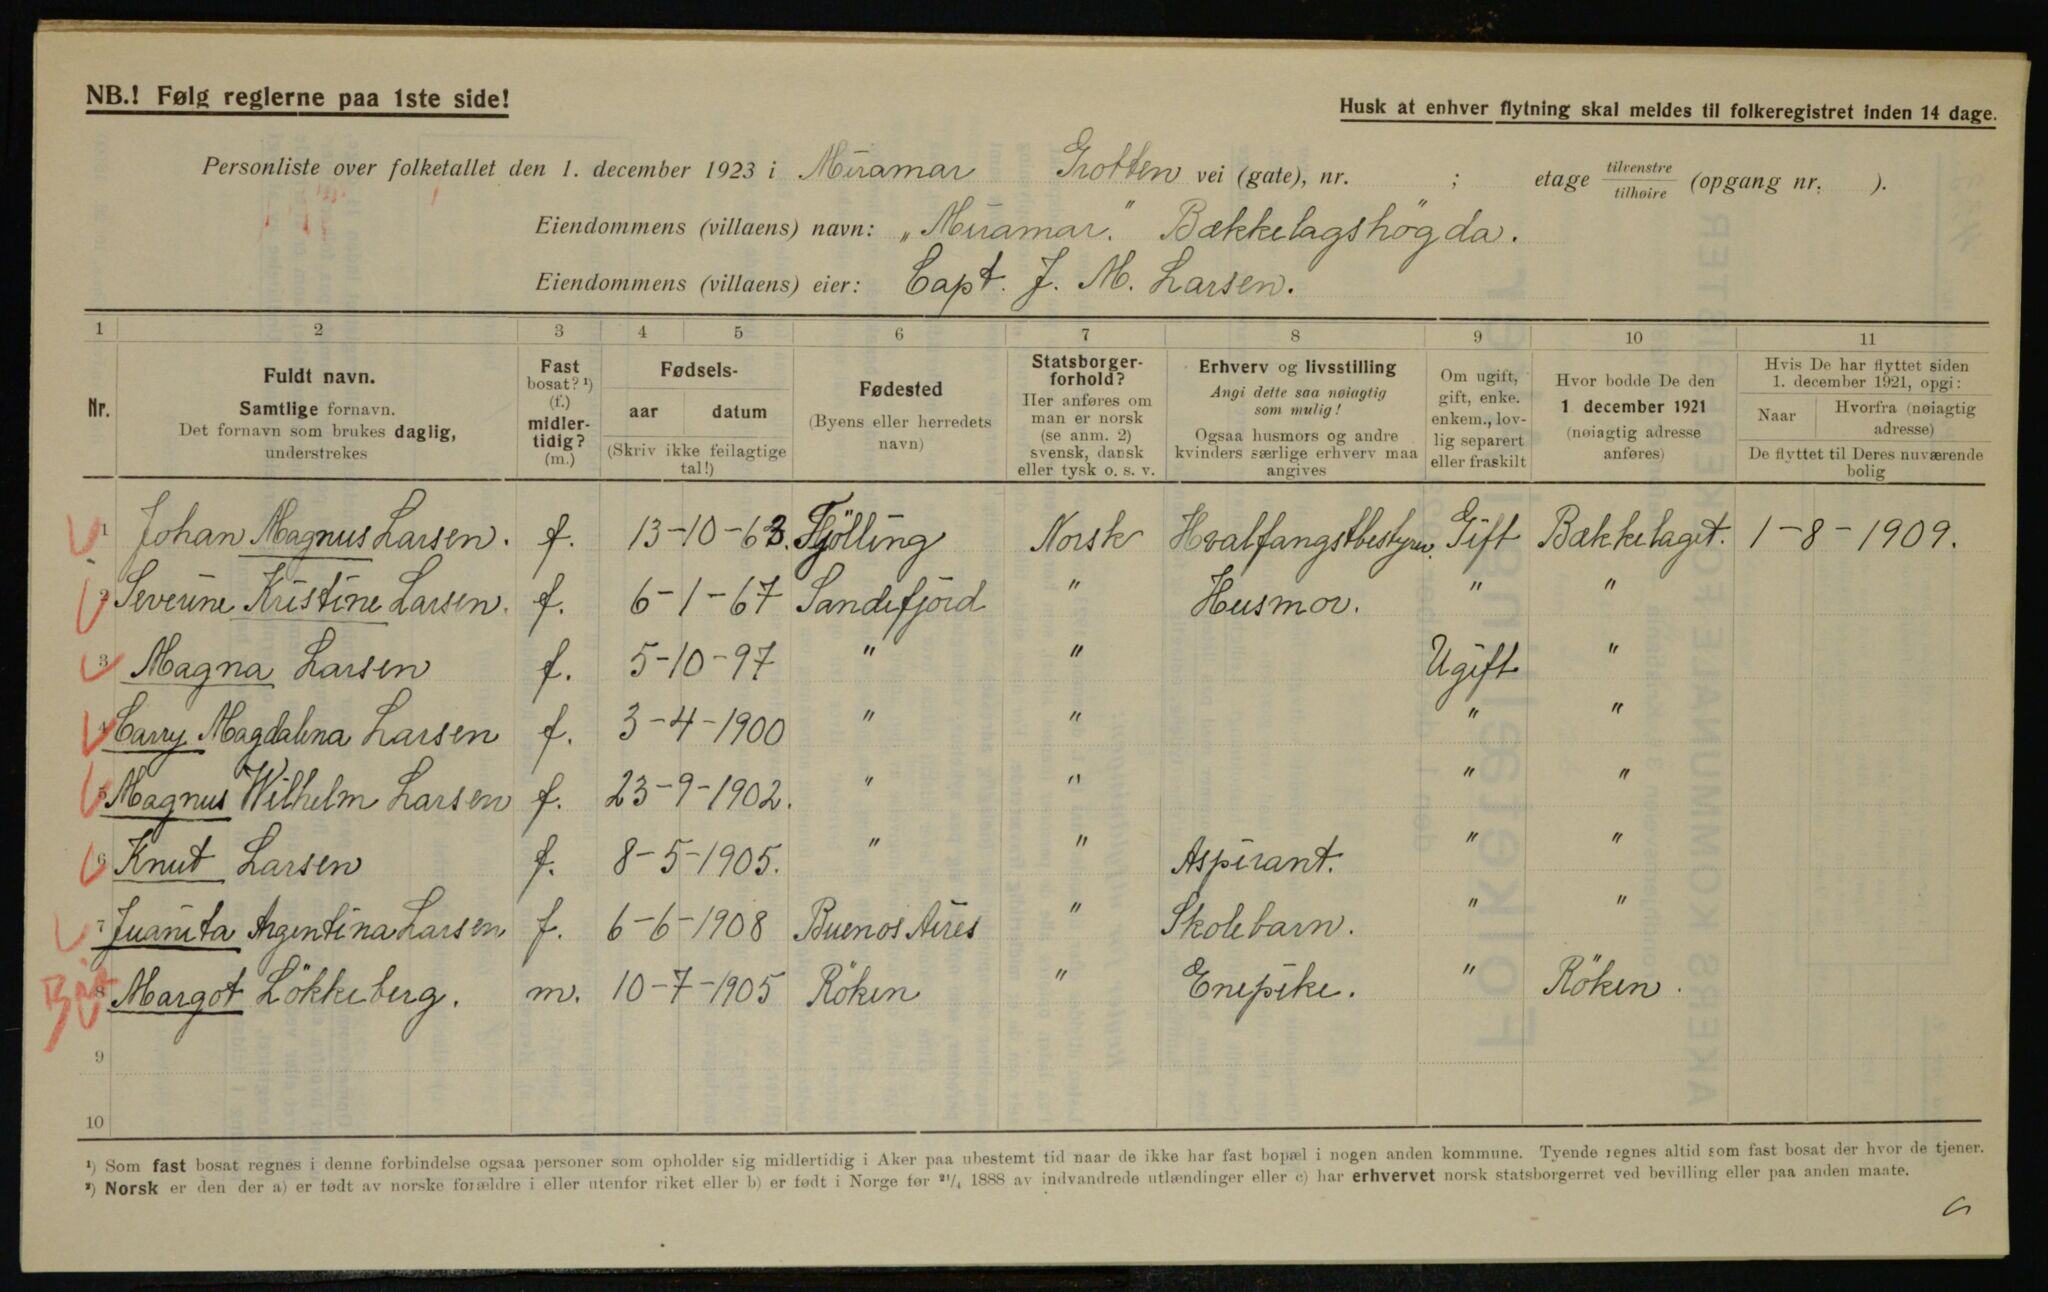 NB.! Følg reglerne paa 1ste side!
Husk at enhver flytning skal meldes til folkeregistret inden 14 dage.
Personliste over folketallet den 1. december 1923 i Miramar Grotten vei (gate), nr. ; etage tilvenstre tilhøire (opgang nr. ).
Eiendommens (villaens) navn: „Miramar." Bækkelagshögda.
Eiendommens (villaens) eier: Capt. J. M. Larsen.
1 2 3 4 5 6 7 8 9 10 11
Nr.
Fuldt navn.
Samtlige fornavn.
Det fornavn som brukes daglig,
understrekes
Fast
bosat? ¹)
(f.)
midler-
tidig?
(m.)
Fødsels-
aar datum
(Skriv ikke feilagtige
tal!)
Fødested
(Byens eller herredets
navn)
Statsborger-
forhold?
Her anføres om
man er norsk
(se anm. 2)
svensk, dansk
eller tysk o. s. v.
Erhverv og livsstilling
Angi dette saa nøiagtig
som mulig!
Ogsaa husmors og andre
kvinders særlige erhverv maa
angives
Om ugift,
gift, enke.
enkem., lov-
lig separert
eller fraskilt
Hvor bodde De den
1 december 1921
(nøiagtig adresse
anføres)
Hvis De har flyttet siden
1. december 1921, opgi:
Naar Hvorfra (nøiagtig
adresse)
De flyttet til Deres nuværende
bolig
1 Johan Magnus Larsen. f. 13-10-63. Tjölling Norsk Hvalfangstbestyrer. Gift Bækkelaget. 1-8-1909.
2 Severine Kristine Larsen. f. 6-1-67 Sandefjord " Husmor. " "
3 Magna Larsen f. 5-10-97 " " Ugift "
4 Carry Magdalena Larsen f. 3-4-1900 " " " "
5 Magnus Wilhelm Larsen f. 23-9-1902. " " " "
6 Knut Larsen f. 8-5-1905. " " Aspirant. " "
7 Juanita Argentina Larsen f. 6-6-1908 Buenos Aires " Skolebarn. " "
8 Margot Lökkeberg. m. 10-7-1905 Röken " Enepike. " Röken.
9
10
¹) Som fast bosat regnes i denne forbindelse ogsaa personer som opholder sig midlertidig i Aker paa ubestemt tid naar de ikke har fast bopæl i nogen anden kommune. Tyende regnes altid som fast bosat der hvor de tjener.
²) Norsk er den der a) er født av norske forældre i eller utenfor riket eller b) er født i Norge før ²¹/₄ 1888 av indvandrede utlændinger eller c) har erhvervet norsk statsborgerret ved bevilling eller paa anden maate.